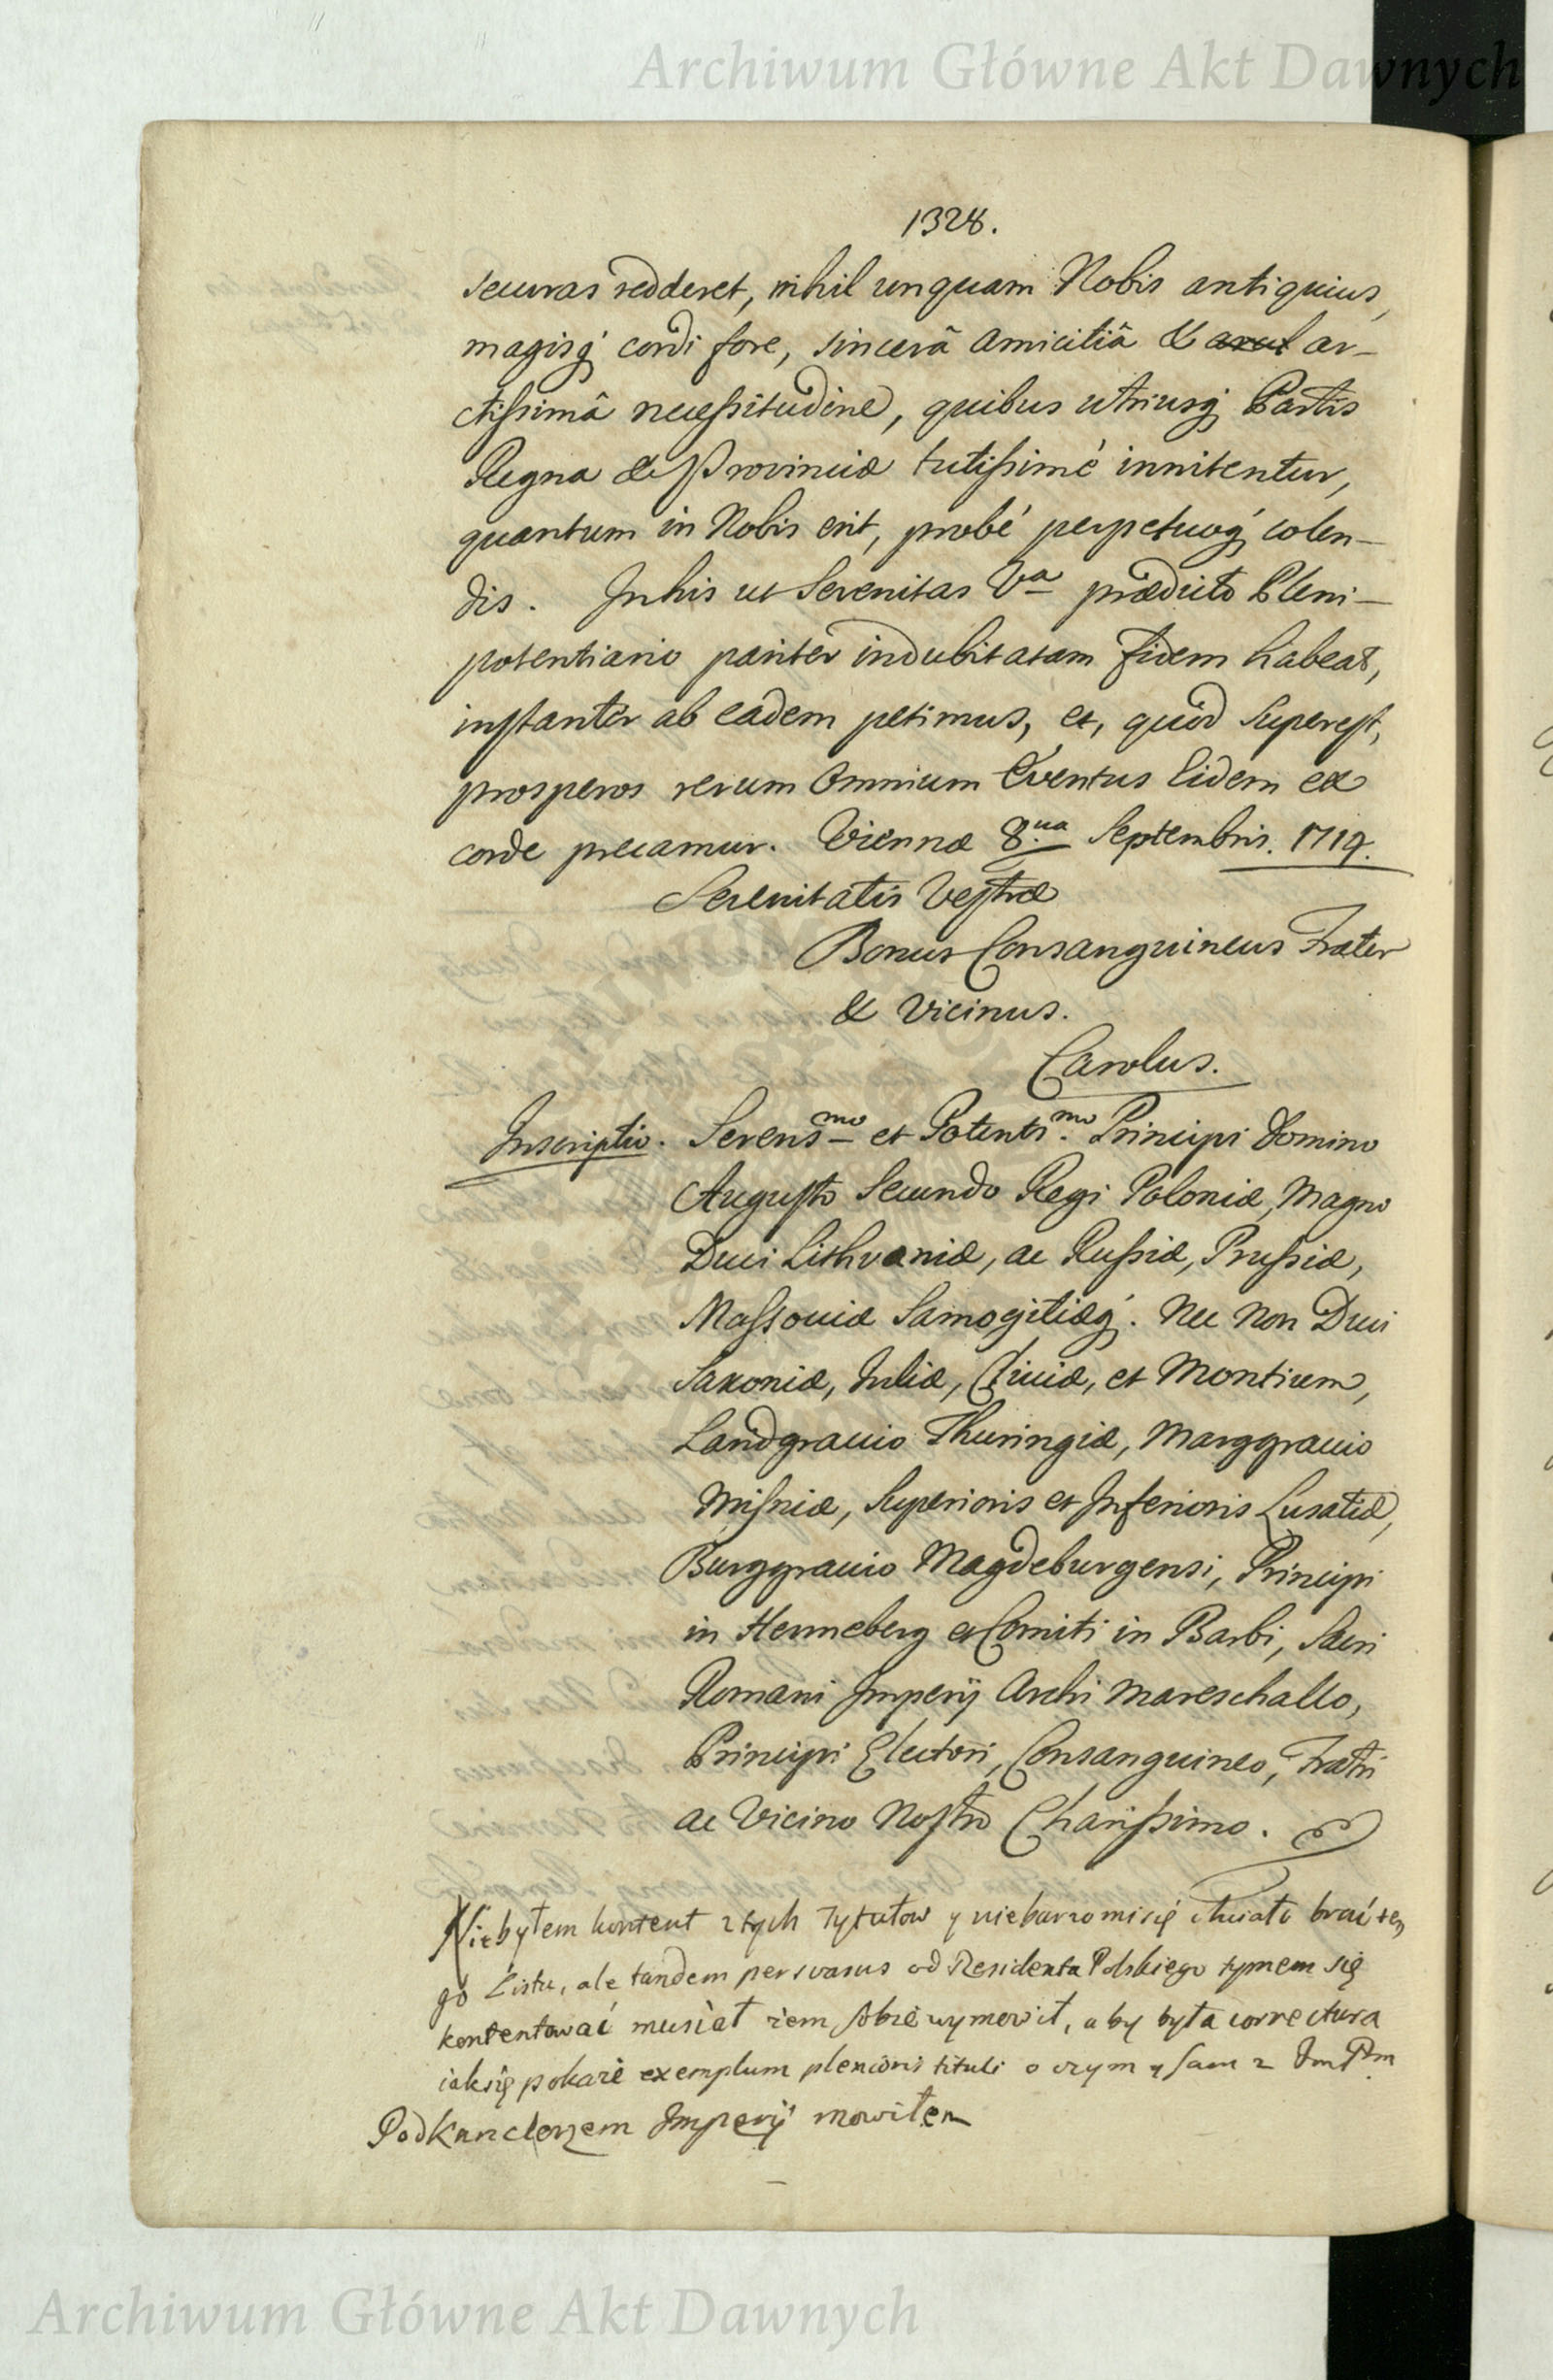 Archiwum Główne Akt Dawnych
1328.
securas redderet, nihil unquam Nobis antiquius,
magisq́ cordi fore, sincerâ Amicitiâ & arct ar-
ctissimâ necessitudine, quibus utriusq́ Partis
Regna & Provinciæ tutissimé innitentur,
quantum in Nobis erit, probé perpetuoq́ colen-
dis. In his ut Serenitas Vᵃ prædicto Pleni-
potentiario pariter indubitatam fidem habeat,
instanter ab eadem petimus, et, quod superest,
prosperos rerum omnium Eventus Eidem ex
corde precamur. Viennæ 8.ᵘᵃ Septembris. 1719.
Serenitatis Vestræ
Bonus Consanguineus Frater
& Vicinus.
Carolus.
Inscriptio. Serensᵐᵒ et Potentsi.ᵐᵒ Principi Domino
Augusto Secundo Regi Poloniæ, Magno
Duci Lithvaniæ, ac Russiæ, Prussiæ,
Massouiæ Samogitiæq́. Nec Non Duci
Saxoniæ, Juliæ, Cliuiæ, et Montium,
Landgrauio Thuringiæ, Marggrauio
Misniæ, Superioris et Inferioris Lusatiæ,
Burggrauio Magdeburgensi, Principi
in Henneberg et Comiti in Barbi, Sacri
Romani Imperij Archi Mareschallo,
Principi Electori, Consanguineo, Fratri
ac Vicino Nostro Charissimo.
Nie byłem kontent z tych Tytułow y niebarzo mi się chciało brać te
go Listu, ale tandem persvasus od Residenta Polskiego tymem się
kontentować musiał żem sobie wymowił, aby była correctura
iak się pokaże exemplum plenioris tituli o czym y sam z Jm Pm
PodKanclerzem Imperij mowiłem
Archiwum Główne Akt Dawnych